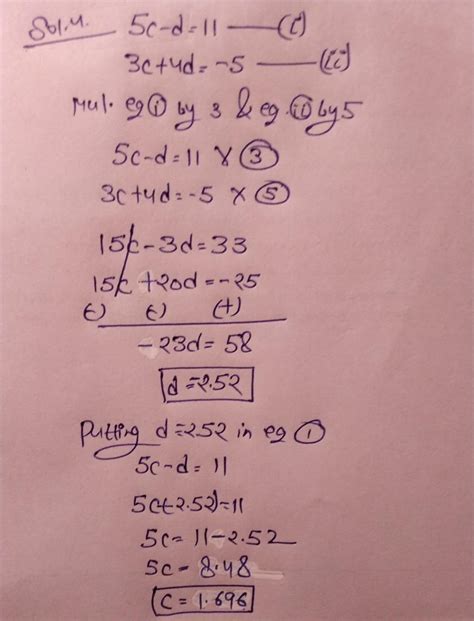 Sol.
5c-d=11 — (i)
3c+4d=-5 — (ii)
Mul. eq (i) by 3 & eq. (ii) by 5
5c-d=11 × (3)
3c+4d=-5 × (5)
15c-3d=33
15c+20d=-25
(-) (-) (+)
-23d=58
d=2.52
Putting d=2.52 in eq (1)
5c-d=11
5c(-2.52)=11
5c=11-2.52
5c-8.48
c=1.696